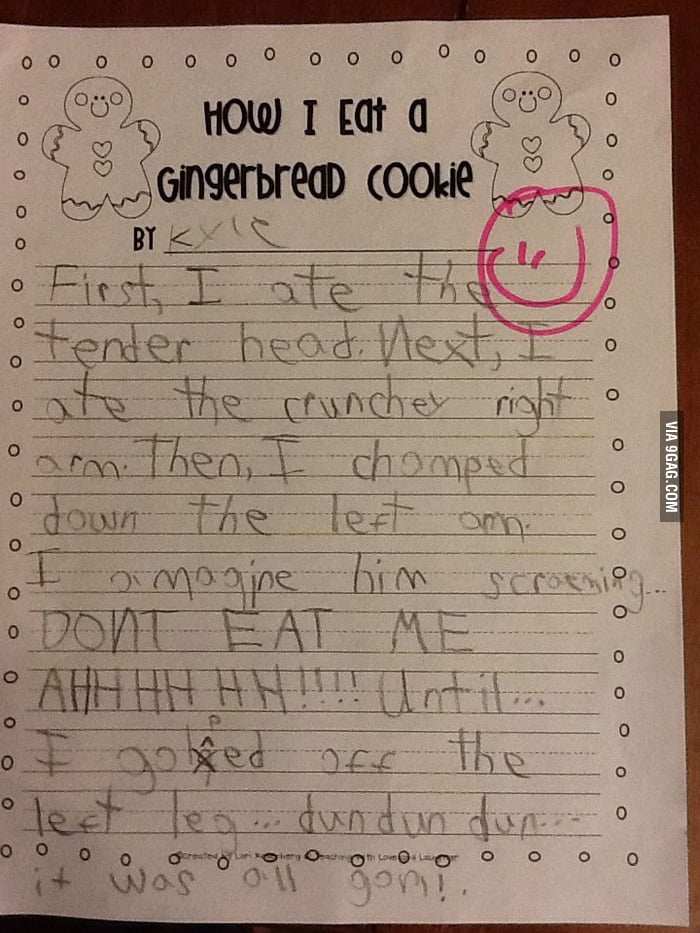 HOW I Eat a
Gingerbread Cookie
BY Kyle
First, I ate the
tender head. Next, I
ate the crunchey right
arm. Then, I chomped
down the left arm.
I amagine him screaming...
DONT EAT ME
AHHHHHH!!!! Until...
I golped off the
left leg... dun dun dun...
it was all gon!.
VIA 9GAG.COM